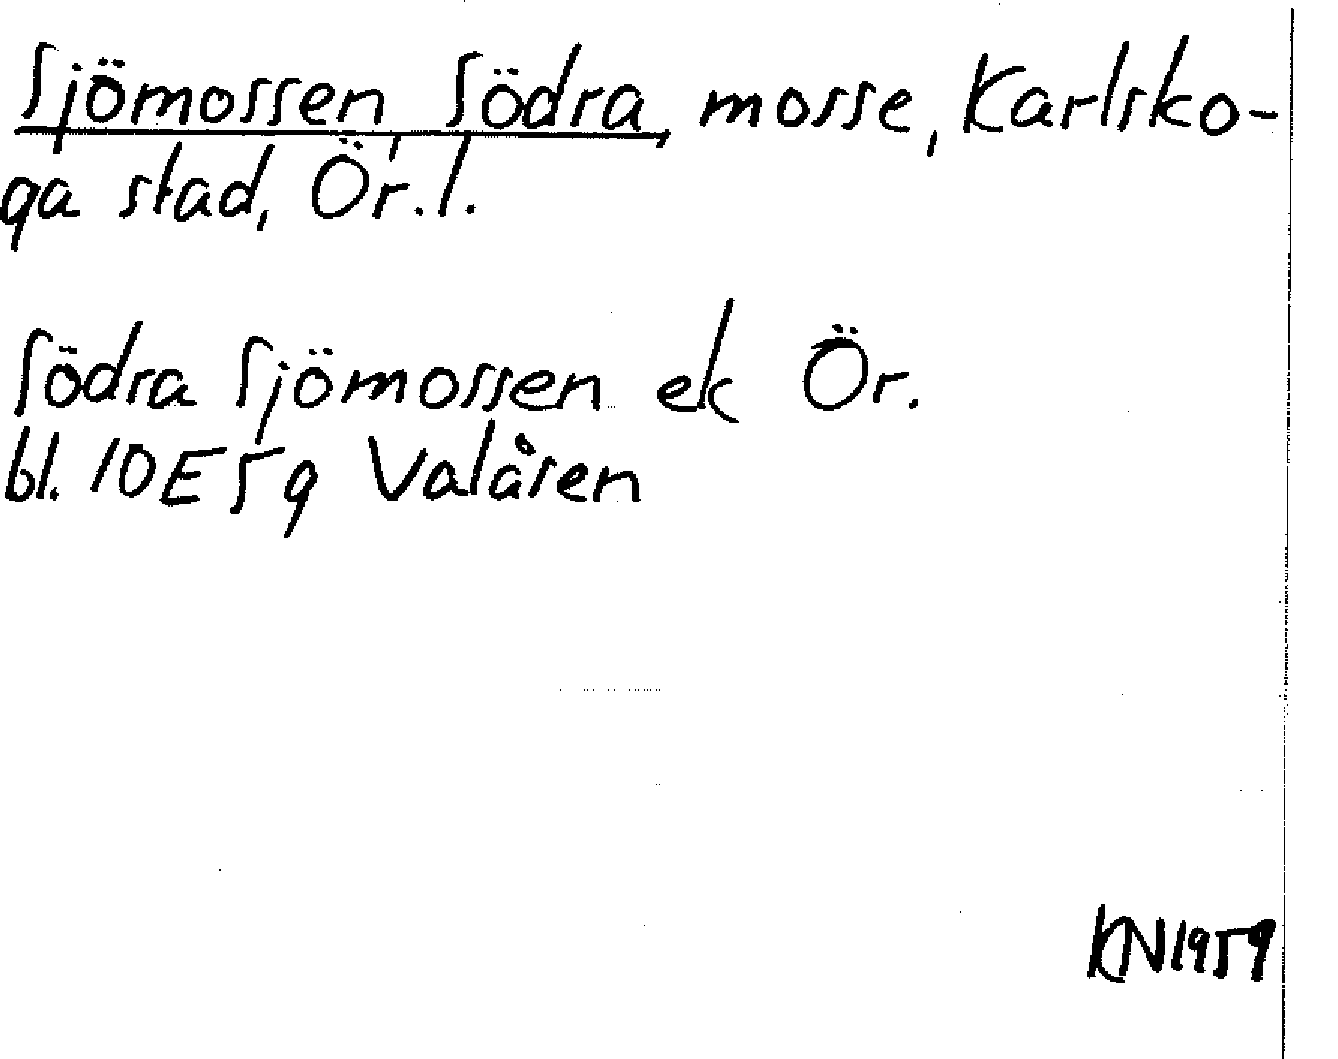 Sjömossen, Södra, mosse, Karlsko-
ga stad, Ör. l.
Södra Sjömossen ek Ör.
bl. 10E5g Valåsen
KN1959